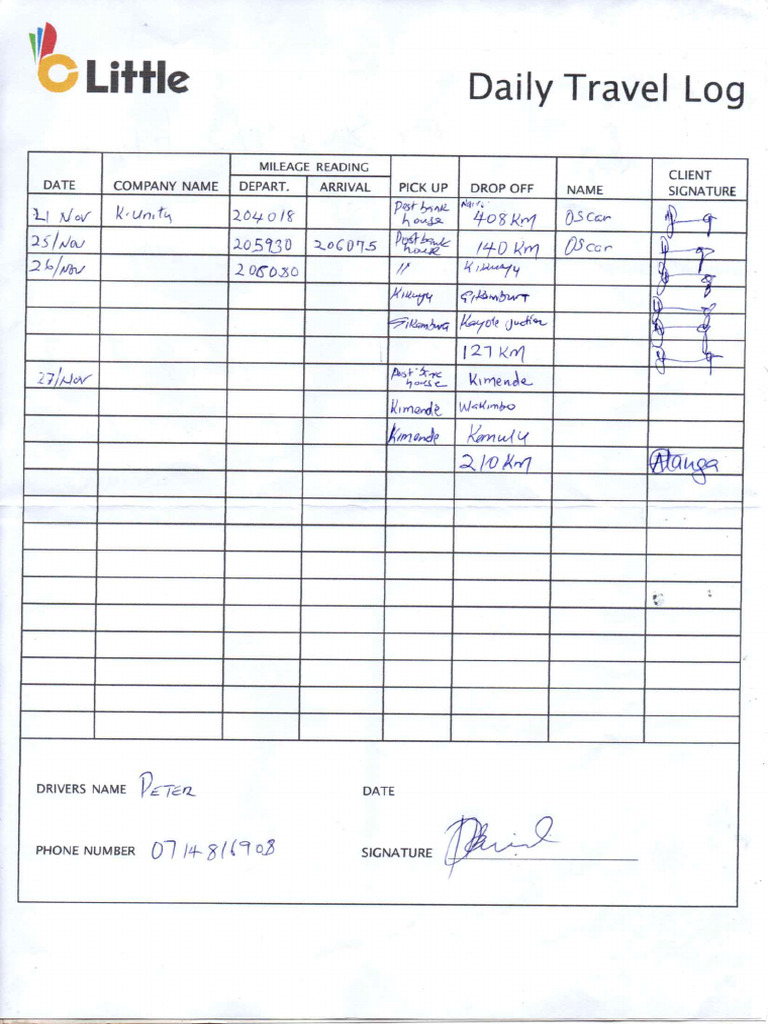 Little
Daily Travel Log
DATE COMPANY NAME MILEAGE READING DEPART. ARRIVAL PICK UP DROP OFF NAME CLIENT SIGNATURE
21 Nov K-unity 204018 Post bank house 408 KM Oscar
25/Nov 205930 206075 Post bank house 140 KM Oscar
26/Nov 206080 " Kikuyu
Kikuyu Gikambura
Gikambura Kayole Juction
127 KM
27/Nov Post bank house Kimende
Kimende Wakimbo
Kimende Kamulu
210 KM Atanga
DRIVERS NAME PETER DATE
PHONE NUMBER 0714816908 SIGNATURE